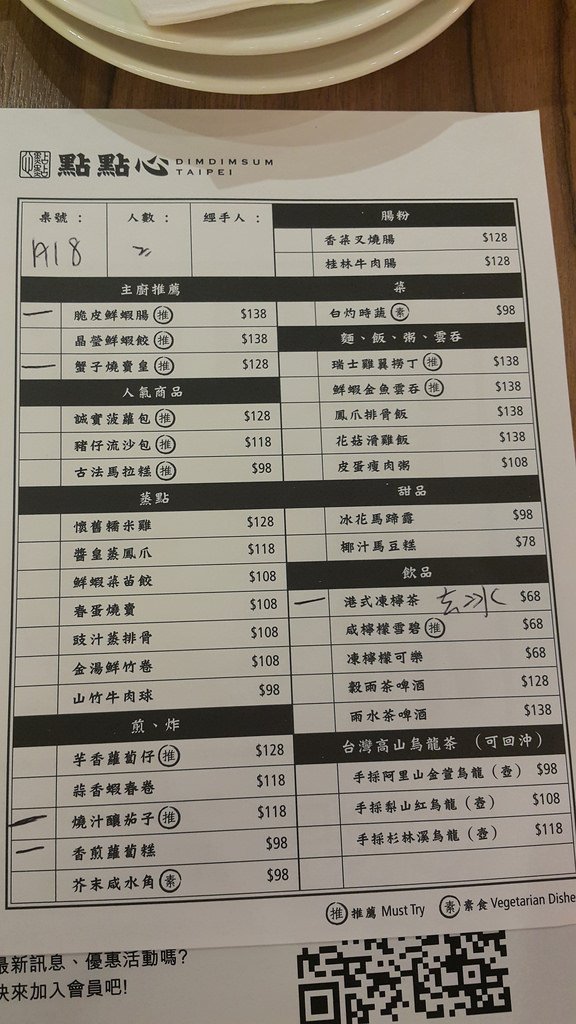 點點心 DIMDIMSUM
TAIPEI
桌號：
人數：
經手人：
A18
二
主廚推薦
脆皮鮮蝦腸 推 $138
晶瑩鮮蝦餃 推 $138
蟹子燒賣皇 推 $128
人氣商品
誠實菠蘿包 推 $128
豬仔流沙包 推 $118
古法馬拉糕 推 $98
蒸點
懷舊糯米雞 $128
醬皇蒸鳳爪 $118
鮮蝦菜苗餃 $108
春蛋燒賣 $108
豉汁蒸排骨 $108
金湯鮮竹卷 $108
山竹牛肉球 $98
煎、炸
芋香蘿蔔仔 推 $128
蒜香蝦春卷 $118
燒汁釀茄子 推 $118
香煎蘿蔔糕 $98
芥末咸水角 素 $98
腸粉
香菜叉燒腸 $128
桂林牛肉腸 $128
菜
白灼時蔬 素 $98
麵、飯、粥、雲吞
瑞士雞翼撈丁 推 $138
鮮蝦金魚雲吞 推 $138
鳳爪排骨飯 $138
花菇滑雞飯 $138
皮蛋瘦肉粥 $108
甜品
冰花馬蹄露 $98
椰汁馬豆糕 $78
飲品
港式凍檸茶 去冰 $68
咸檸檬雪碧 推 $68
凍檸檬可樂 $68
穀雨茶啤酒 $128
雨水茶啤酒 $138
台灣高山烏龍茶 （可回沖）
手採阿里山金萱烏龍（壺） $98
手採梨山紅烏龍（壺） $108
手採杉林溪烏龍（壺） $118
推 推薦 Must Try 素 素食 Vegetarian Dishe
最新訊息、優惠活動嗎?
快來加入會員吧!